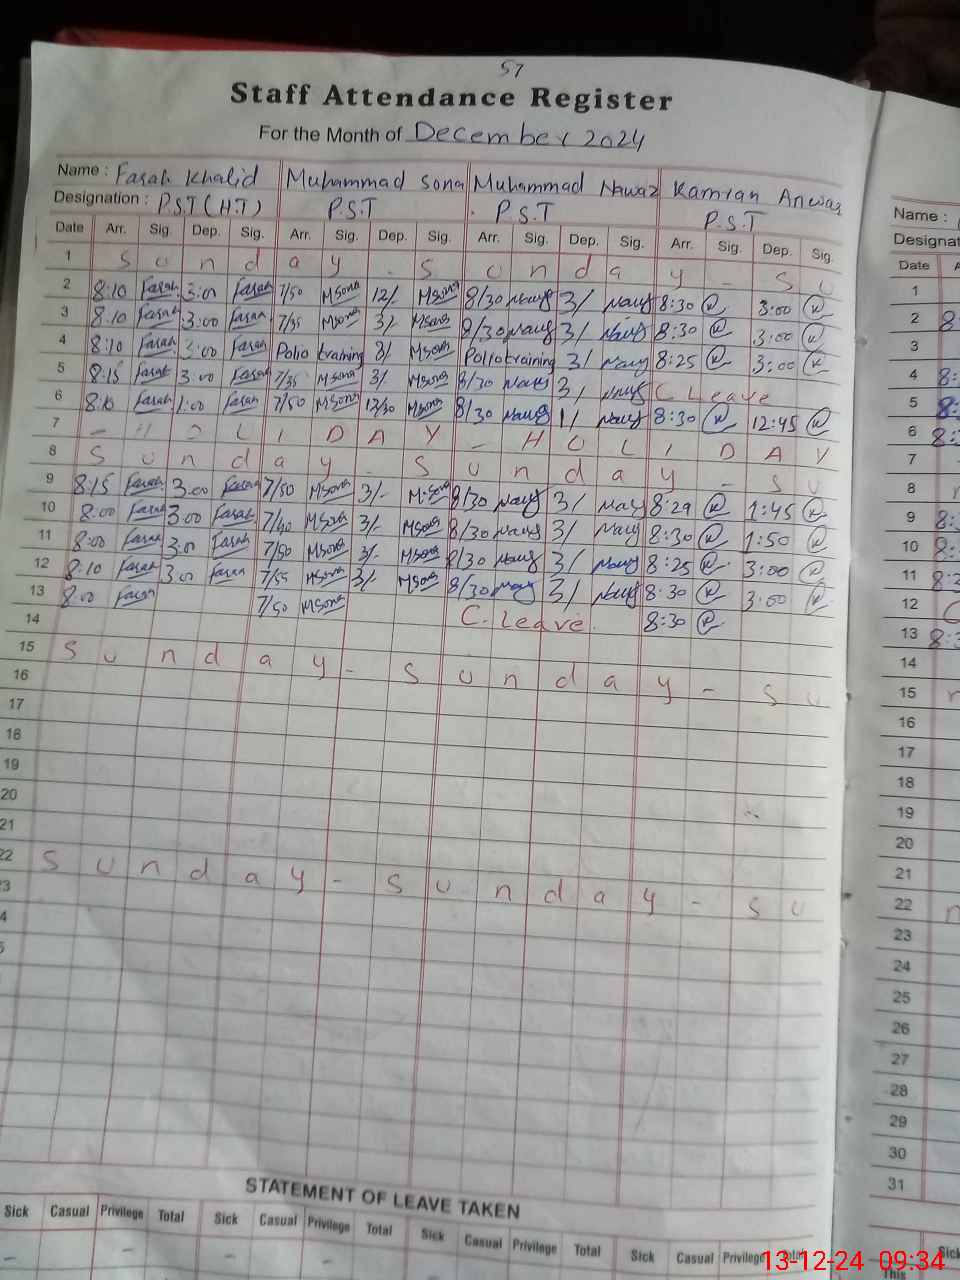 57
Staff Attendance Register
For the Month of December 2024
Name : Farah Khalid Muhammad Sona Muhammad Nawaz Kamran Anwar
Designation : P.S.T (H.T) P.S.T P.S.T P.S.T
Date Arr. Sig. Dep. Sig. Arr. Sig. Dep. Sig. Arr. Sig. Dep. Sig. Arr. Sig. Dep. Sig.
1 S u n d a y - S u n d a y - S u
2 8:10 Farah 3:00 Farah 7/50 MSona 12/- MSona 8/30 Nawz 3/ Nawz 8:30 3:00
3 8:10 Farah 3:00 Farah 7/55 MSona 3/- MSona 8/30 Nawz 3/ Nawz 8:30 3:00
4 8:10 Farah 3:00 Farah Polio training 3/ MSona Polio training 3/ Nawz 8:25 3:00
5 8:15 Farah 3:00 Farah 7/35 MSona 3/- MSona 8/30 Nawz 3/ Nawz C Leave
6 8:10 Farah 1:00 Farah 7/50 MSona 12/30 MSona 8/30 Nawz 1/ Nawz 8:30 12:45
7 - H O L I D A Y - H O L I D A Y
8 S u n d a y - S u n d a y - S u
9 8:15 Farah 3:00 Farah 7/50 MSona 3/- M.Sona 8/30 Nawz 3/ Nawz 8:29 1:45
10 8:00 Farah 3:00 Farah 7/40 MSona 3/- MSona 8/30 Nawz 3/ Nawz 8:30 1:50
11 8:00 Farah 3:00 Farah 7/50 MSona 3/- MSona 8/30 Nawz 3/ Nawz 8:25 3:00
12 8:10 Farah 3:00 Farah 7/55 MSona 3/- MSona 8/30 Nawz 3/ Nawz 8:30 3:00
13 8:00 Farah 7/50 MSona C. Leave. 8:30
14
15 S u n d a y - S u n d a y - S u
16
17
18
19
20
21
22 S u n d a y - S u n d a y - S u
3
4
5
STATEMENT OF LEAVE TAKEN
Sick Casual Privilege Total Sick Casual Privilege Total Sick Casual Privilege Total Sick Casual Privilege Total
Name :
Designat
Date
1
2 8:
3
4 8:
5 8:
6 8:
7
8
9 8:
10 8:
11 8:
12 C
13 8:
14
15
16
17
18
19
20
21
22
23
24
25
26
27
28
29
30
31
Sick
This
13-12-24 09:34